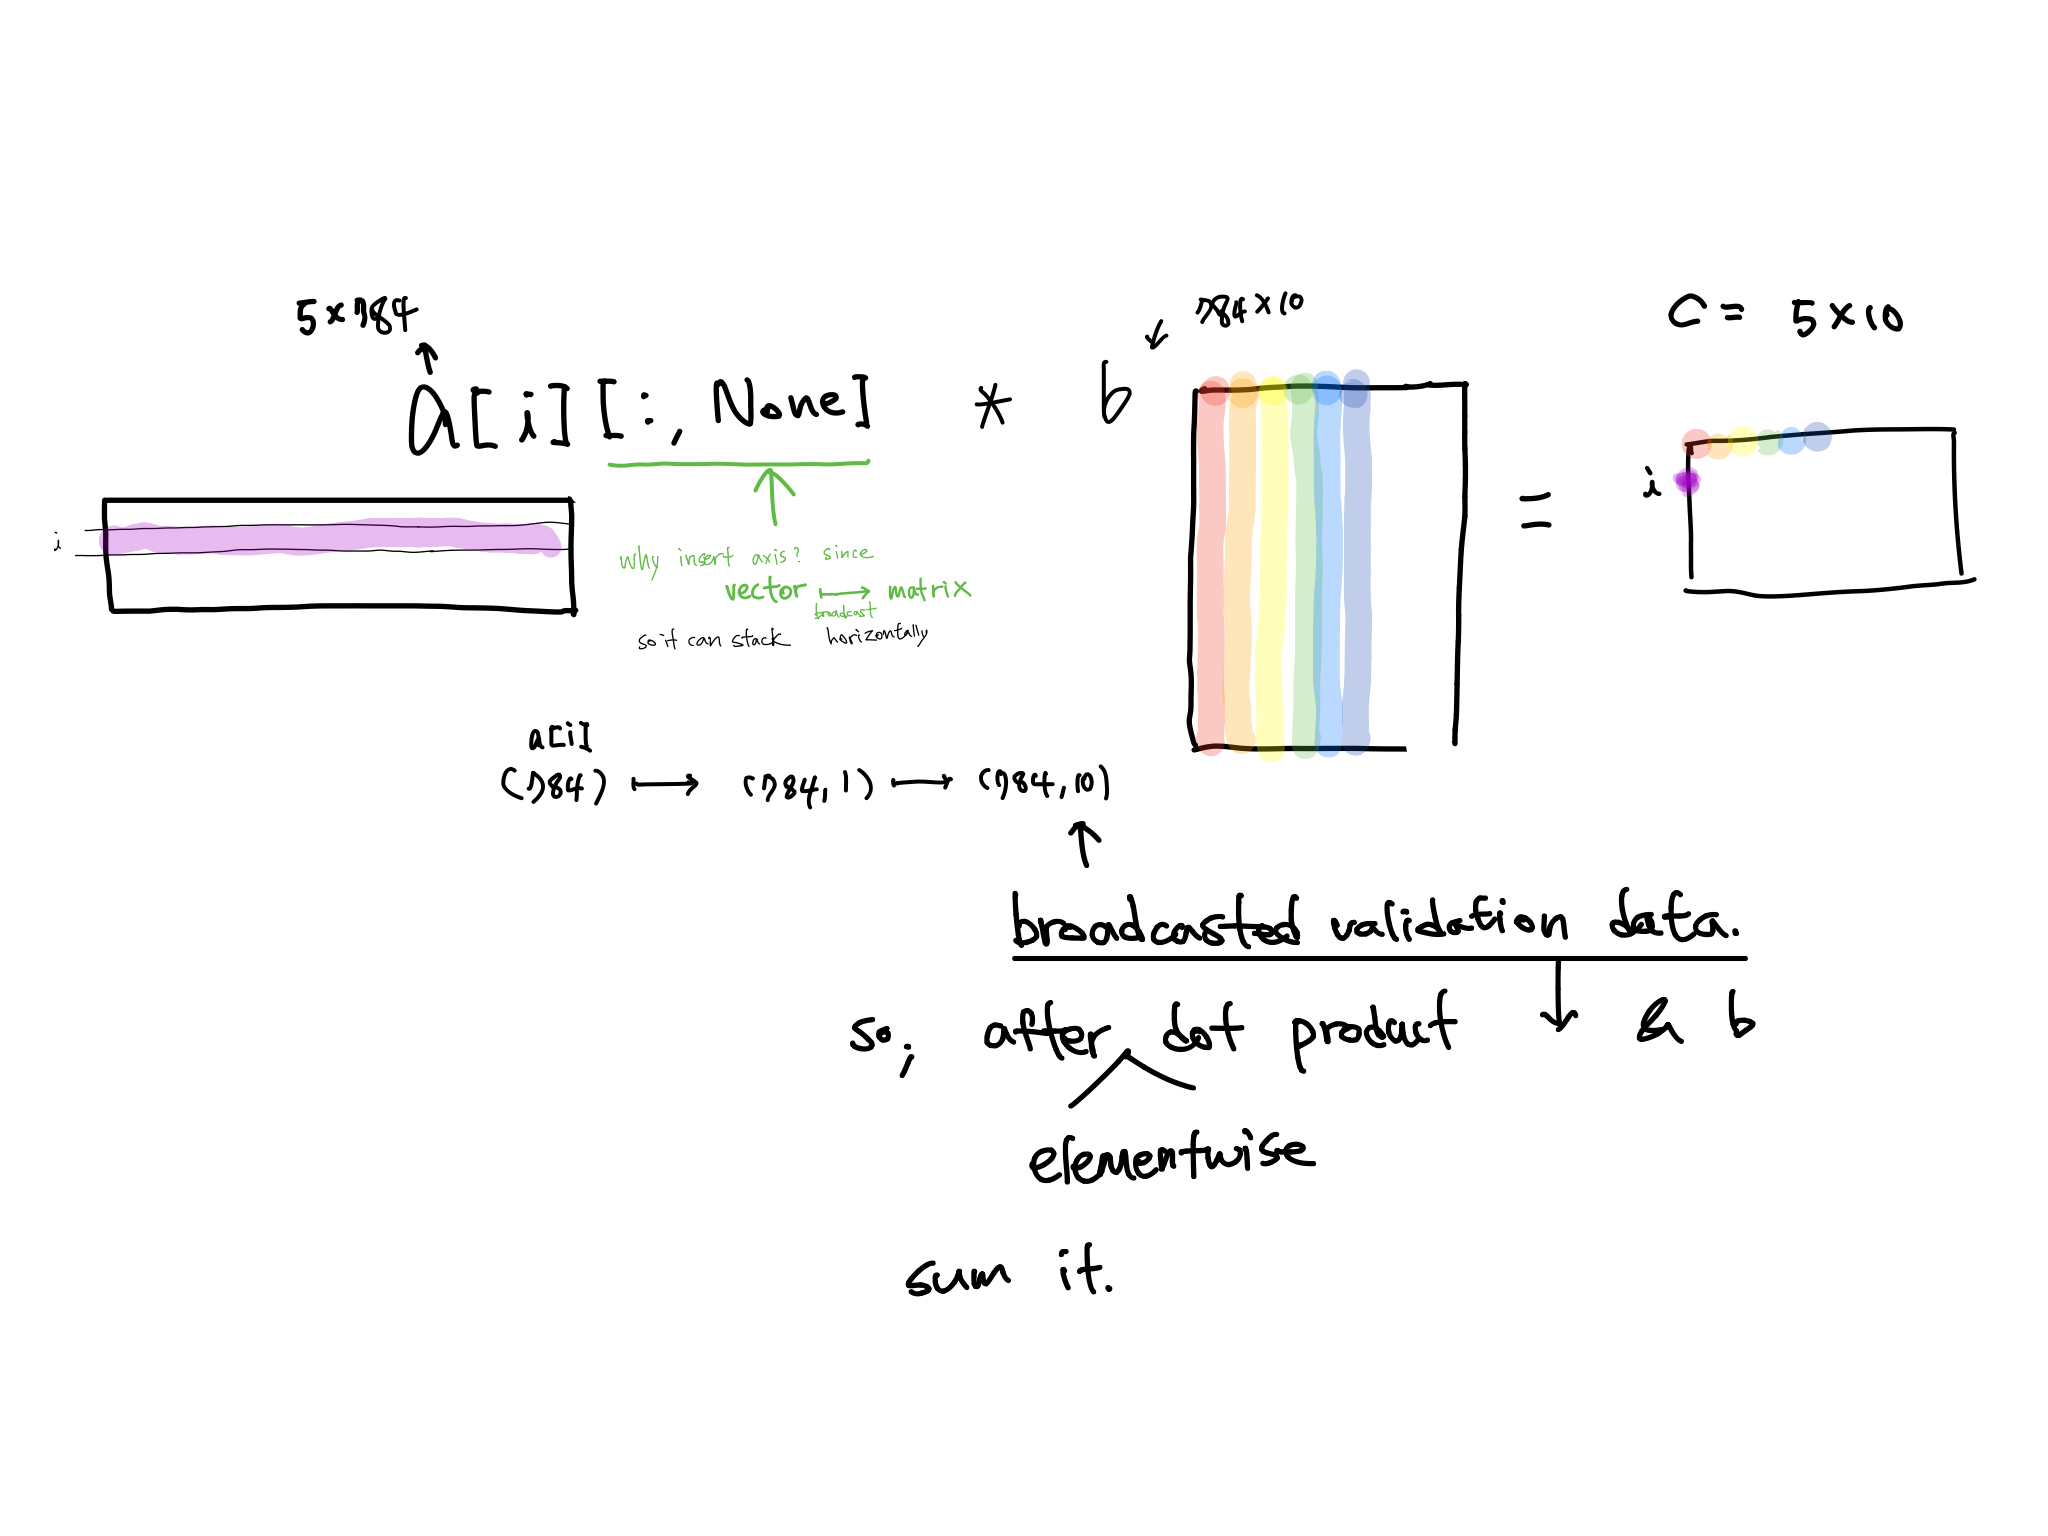 5×784
784×10
c = 5×10
a[i][:, None] * b
=
i
i
why insert axis? since
vector ↦ matrix
broadcast
so it can stack horizontally
a[i]
(784) ↦ (784, 1) ↦ (784, 10)
broadcasted validation data.
so, after dot product ↓ & b
elementwise
sum it.